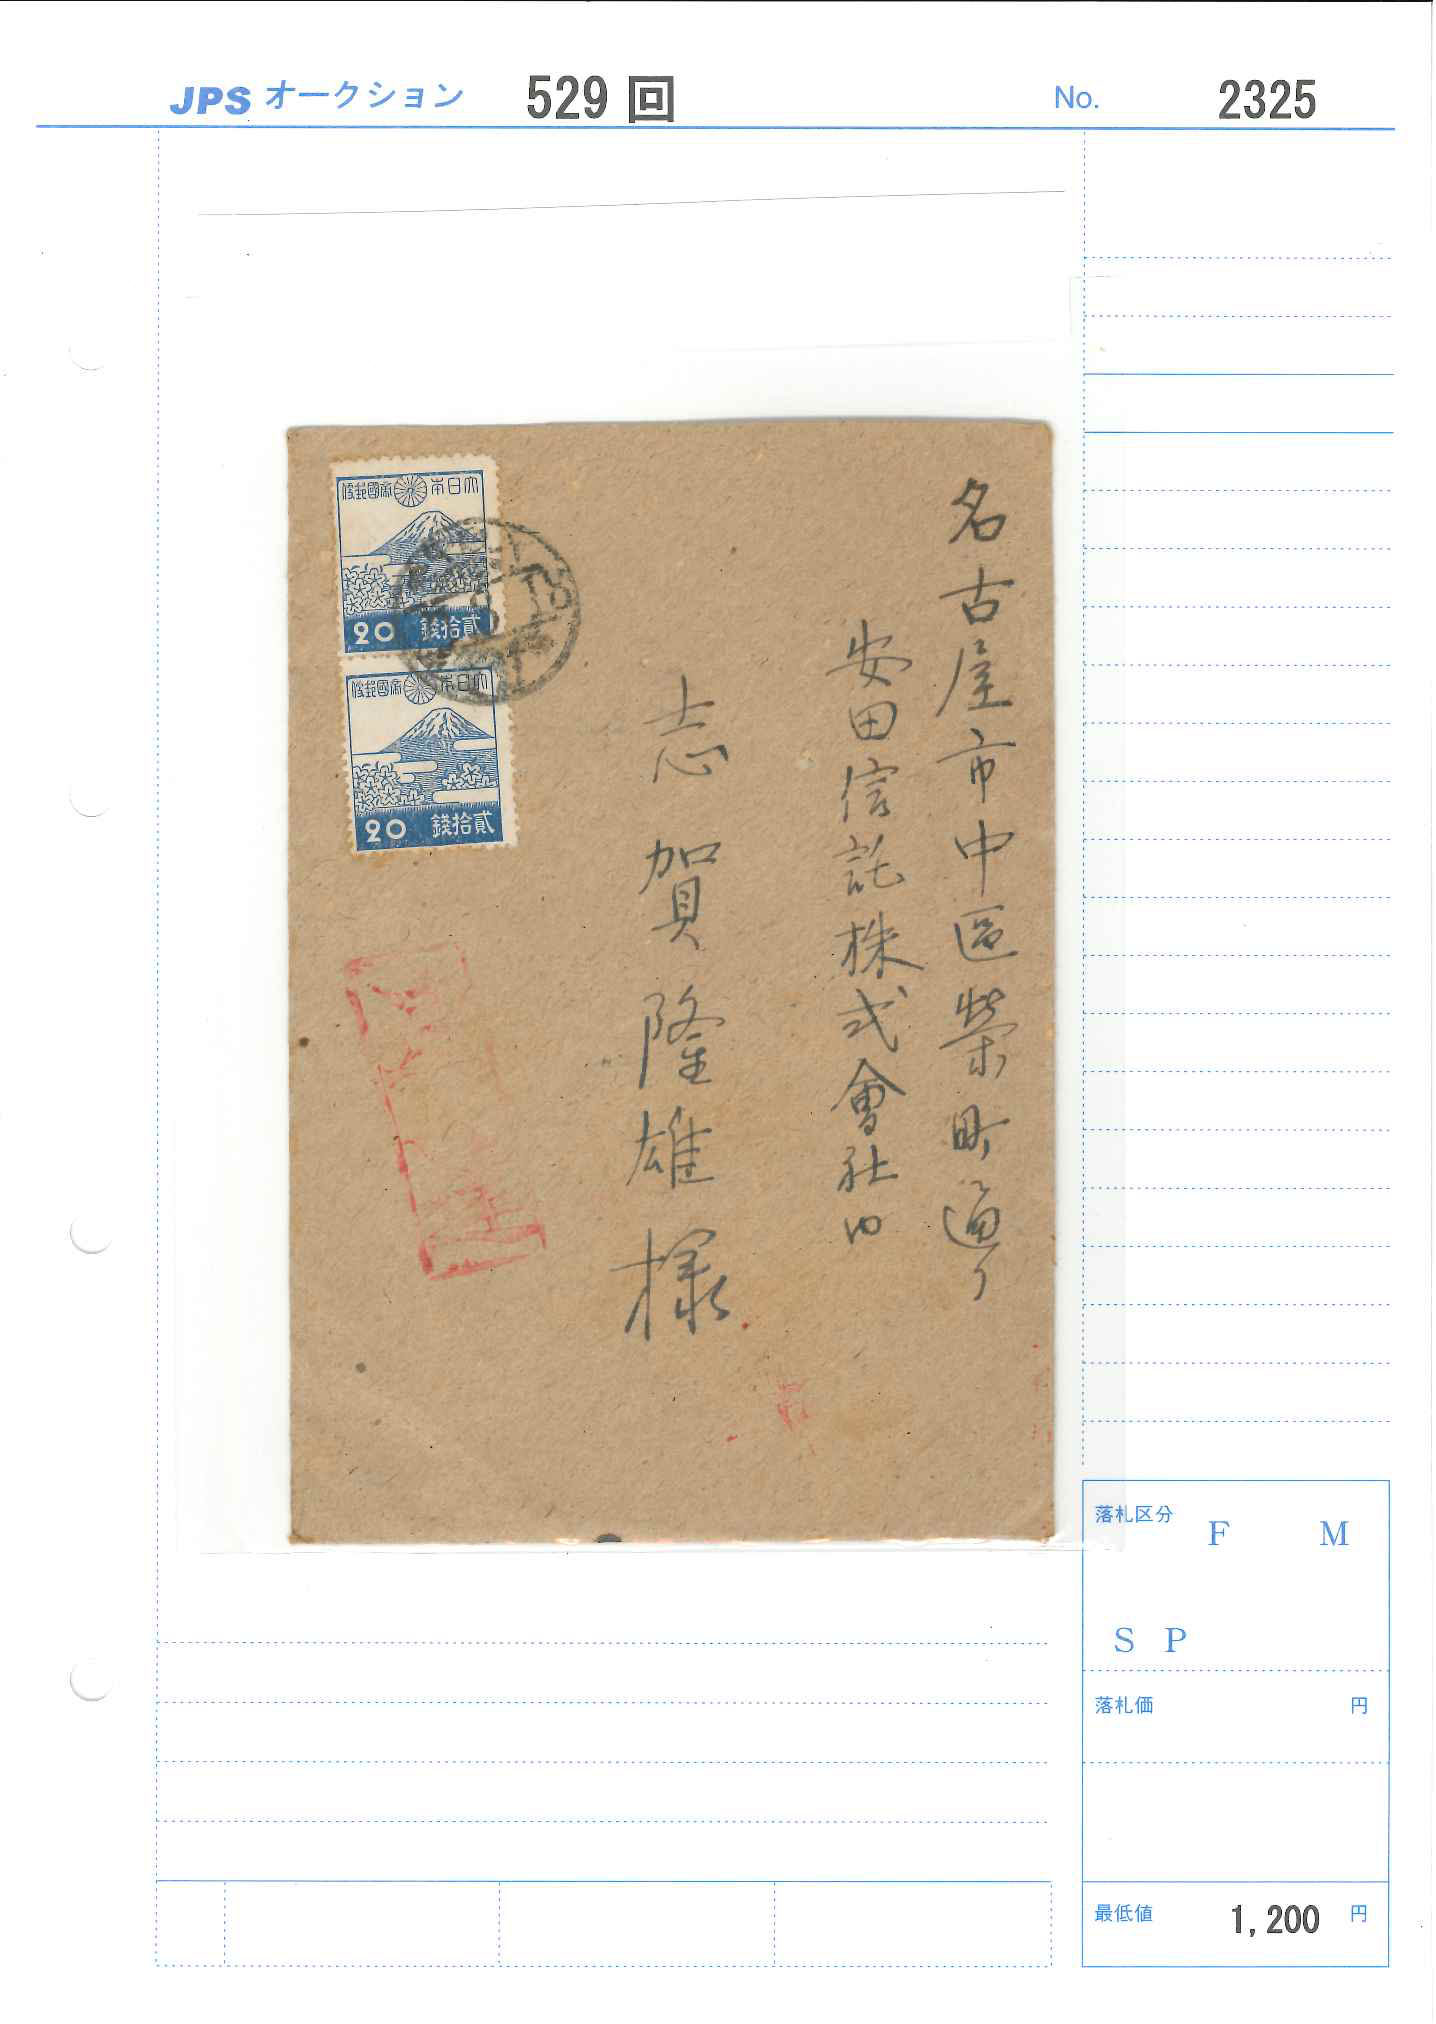 JPS オークション 529 回 No. 2325
大日本帝國郵便
貳拾錢 20
大日本帝國郵便
貳拾錢 20
名古屋市中區榮町通リ
安田信託株式會社内
志賀隆雄様
落札区分 F M
S P
落札価 円
最低値 1,200 円